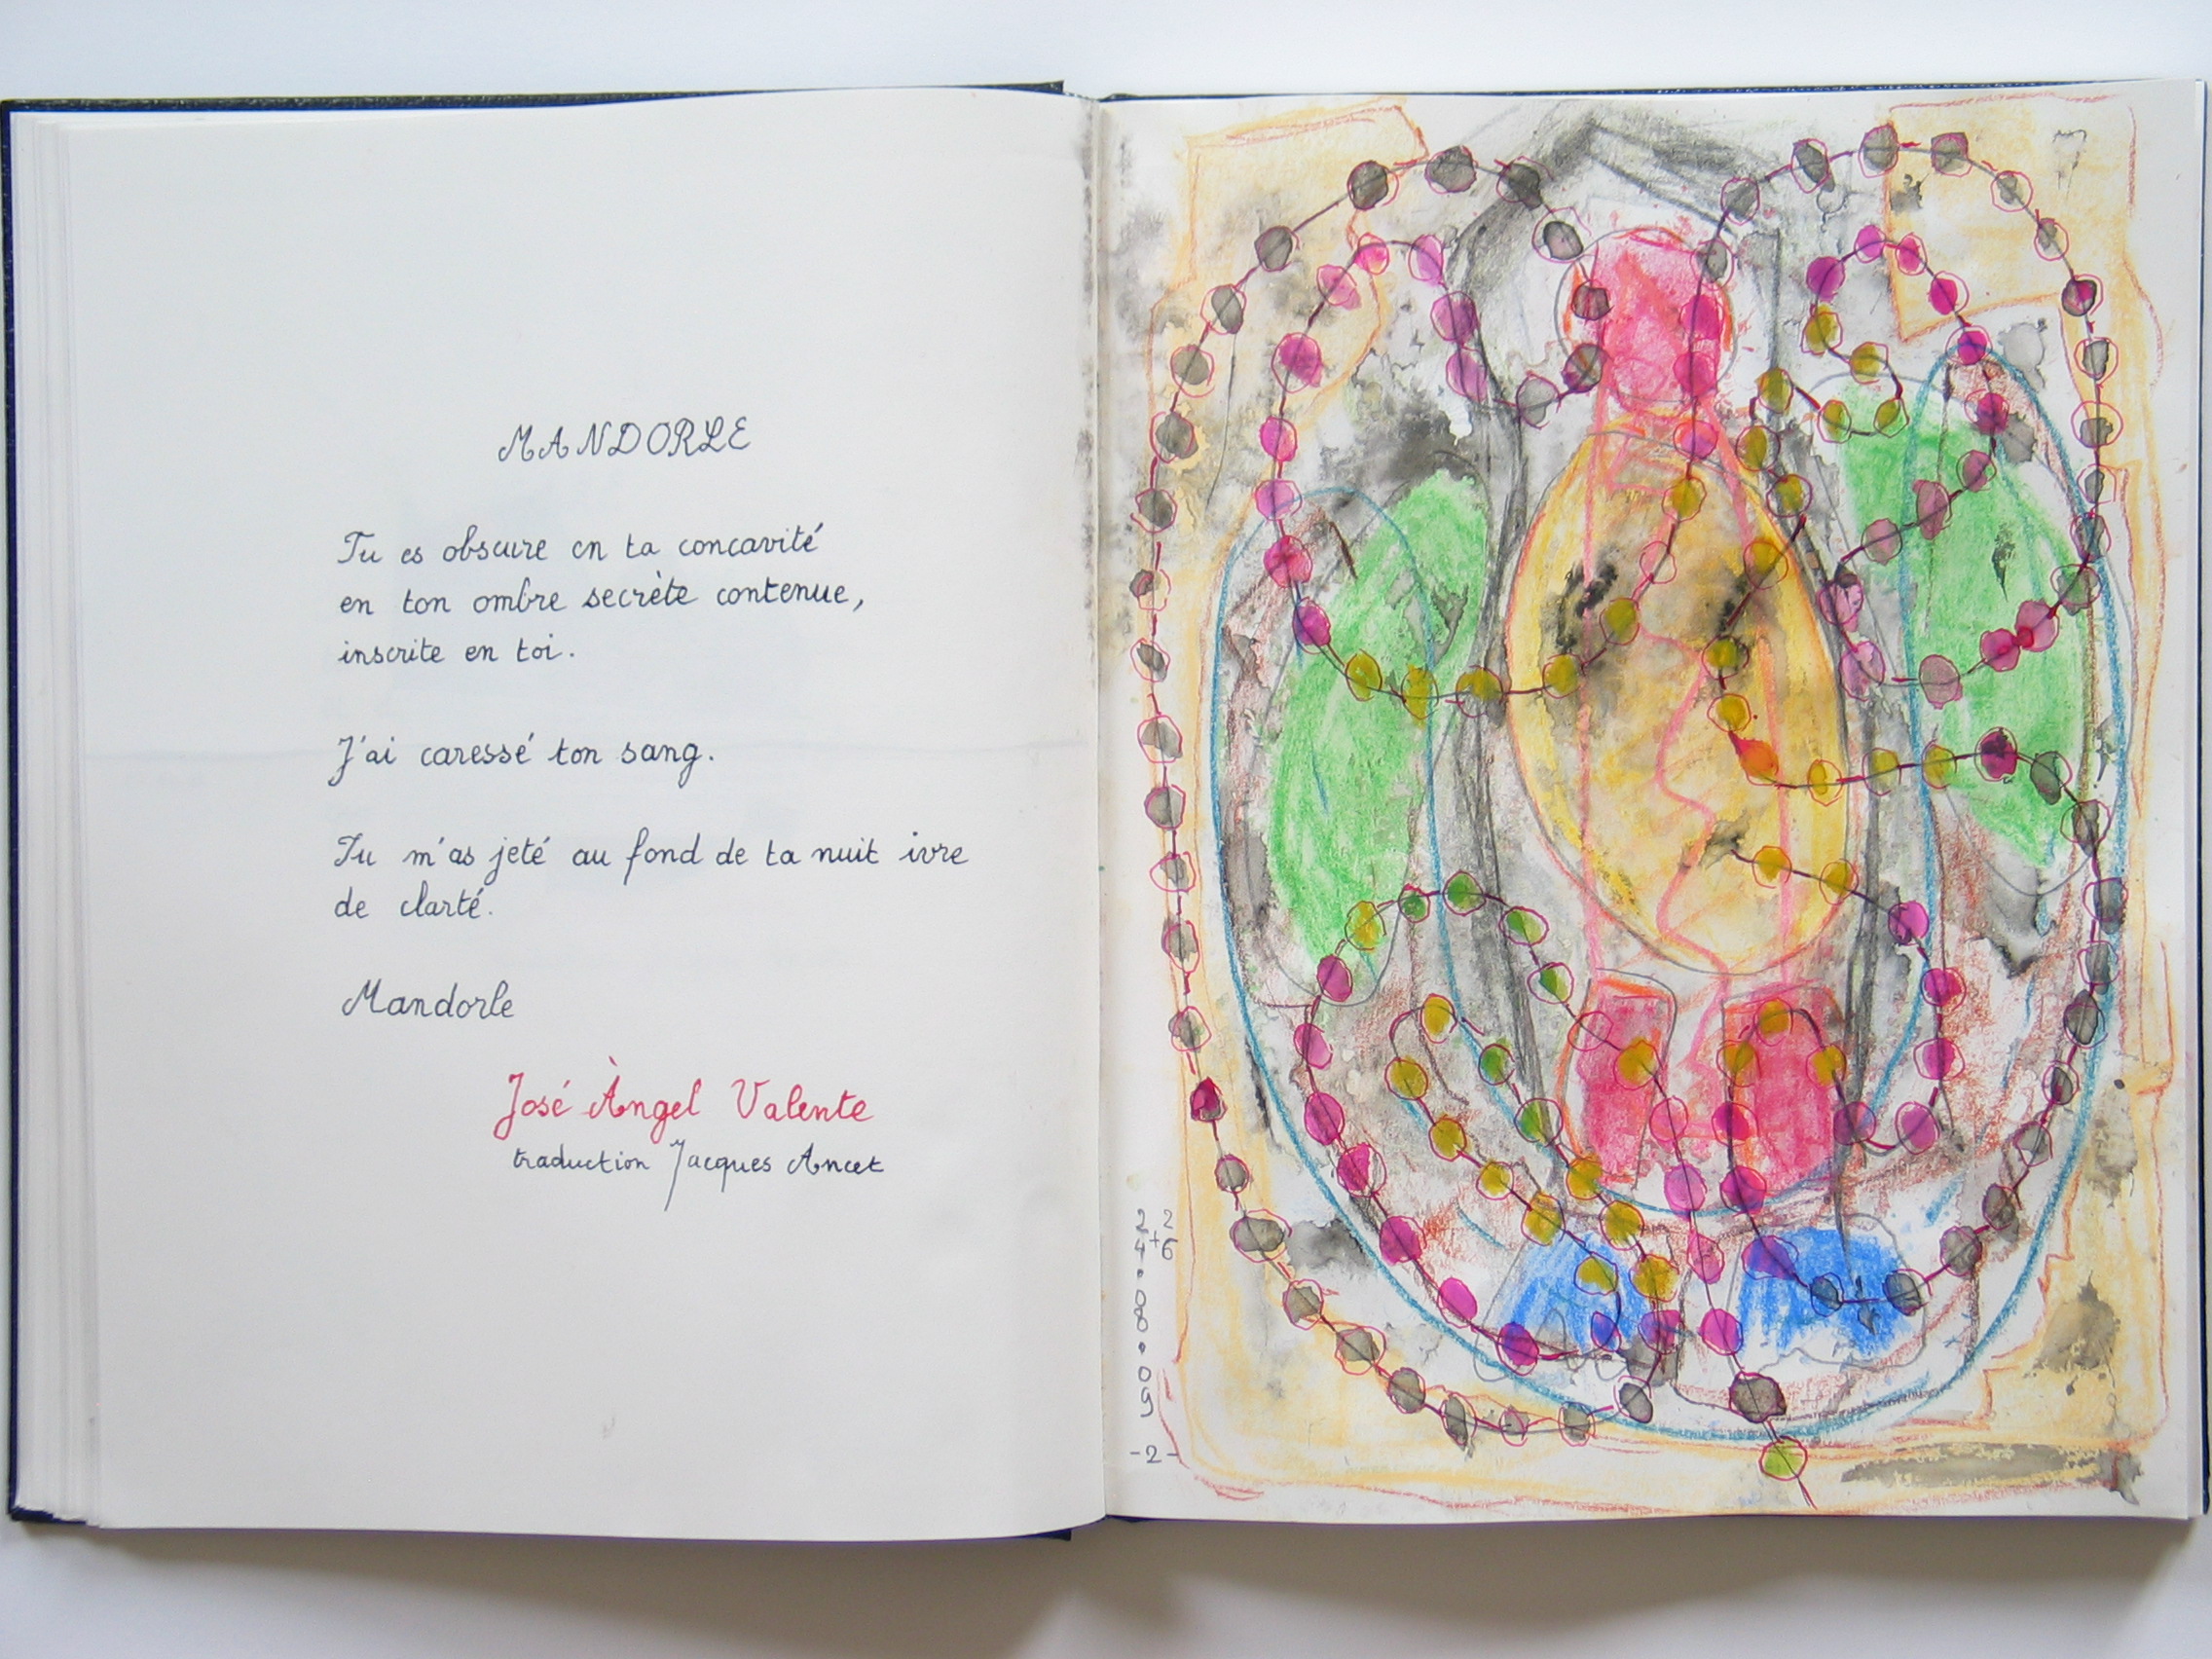 MANDORLE
Tu es obscure en ta concavité
en ton ombre secrète contenue,
inscrite en toi.
J'ai caressé ton sang.
Tu m'as jeté au fond de ta nuit ivre
de clarté.
Mandorle
José Àngel Valente
traduction Jacques Ancet
24+26.08.09
-2-